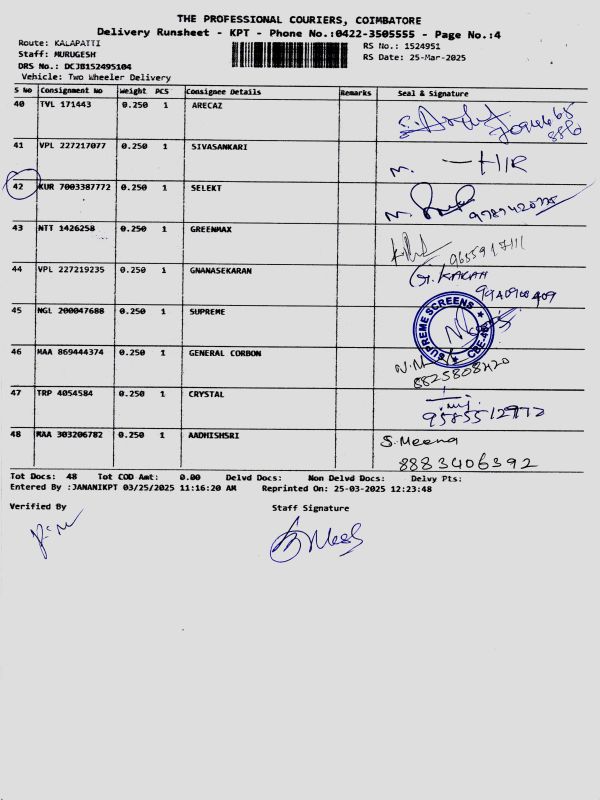 THE PROFESSIONAL COURIERS, COIMBATORE
Delivery Runsheet - KPT - Phone No.:0422-3505555 - Page No.:4
Route: KALAPATTI
RS No.: 1524951
Staff: MURUGESH
RS Date: 25-Mar-2025
DRS No.: DCJB152495104
Vehicle: Two Wheeler Delivery
S No Consignment No Weight PCS Consignee Details Remarks Seal & Signature
40 TVL 171443 0.250 1 ARECAZ
41 VPL 227217077 0.250 1 SIVASANKARI
HIR
42 KUR 7003387772 0.250 1 SELEKT
43 NTT 1426258 0.250 1 GREENMAX
9655917111
44 VPL 227219235 0.250 1 GNANASEKARAN
45 NGL 200047688 0.250 1 SUPREME
SUPREME SCREENS
46 MAA 869444374 0.250 1 GENERAL CORBON
8825808420
47 TRP 4054584 0.250 1 CRYSTAL
9585512772
48 MAA 303206782 0.250 1 AADHISHSRI S.Meena
8883406392
Tot Docs: 48 Tot COD Amt: 0.00 Delvd Docs: Non Delvd Docs: Delvy Pts:
Entered By :JANANIKPT 03/25/2025 11:16:20 AM Reprinted On: 25-03-2025 12:23:48
Verified By Staff Signature